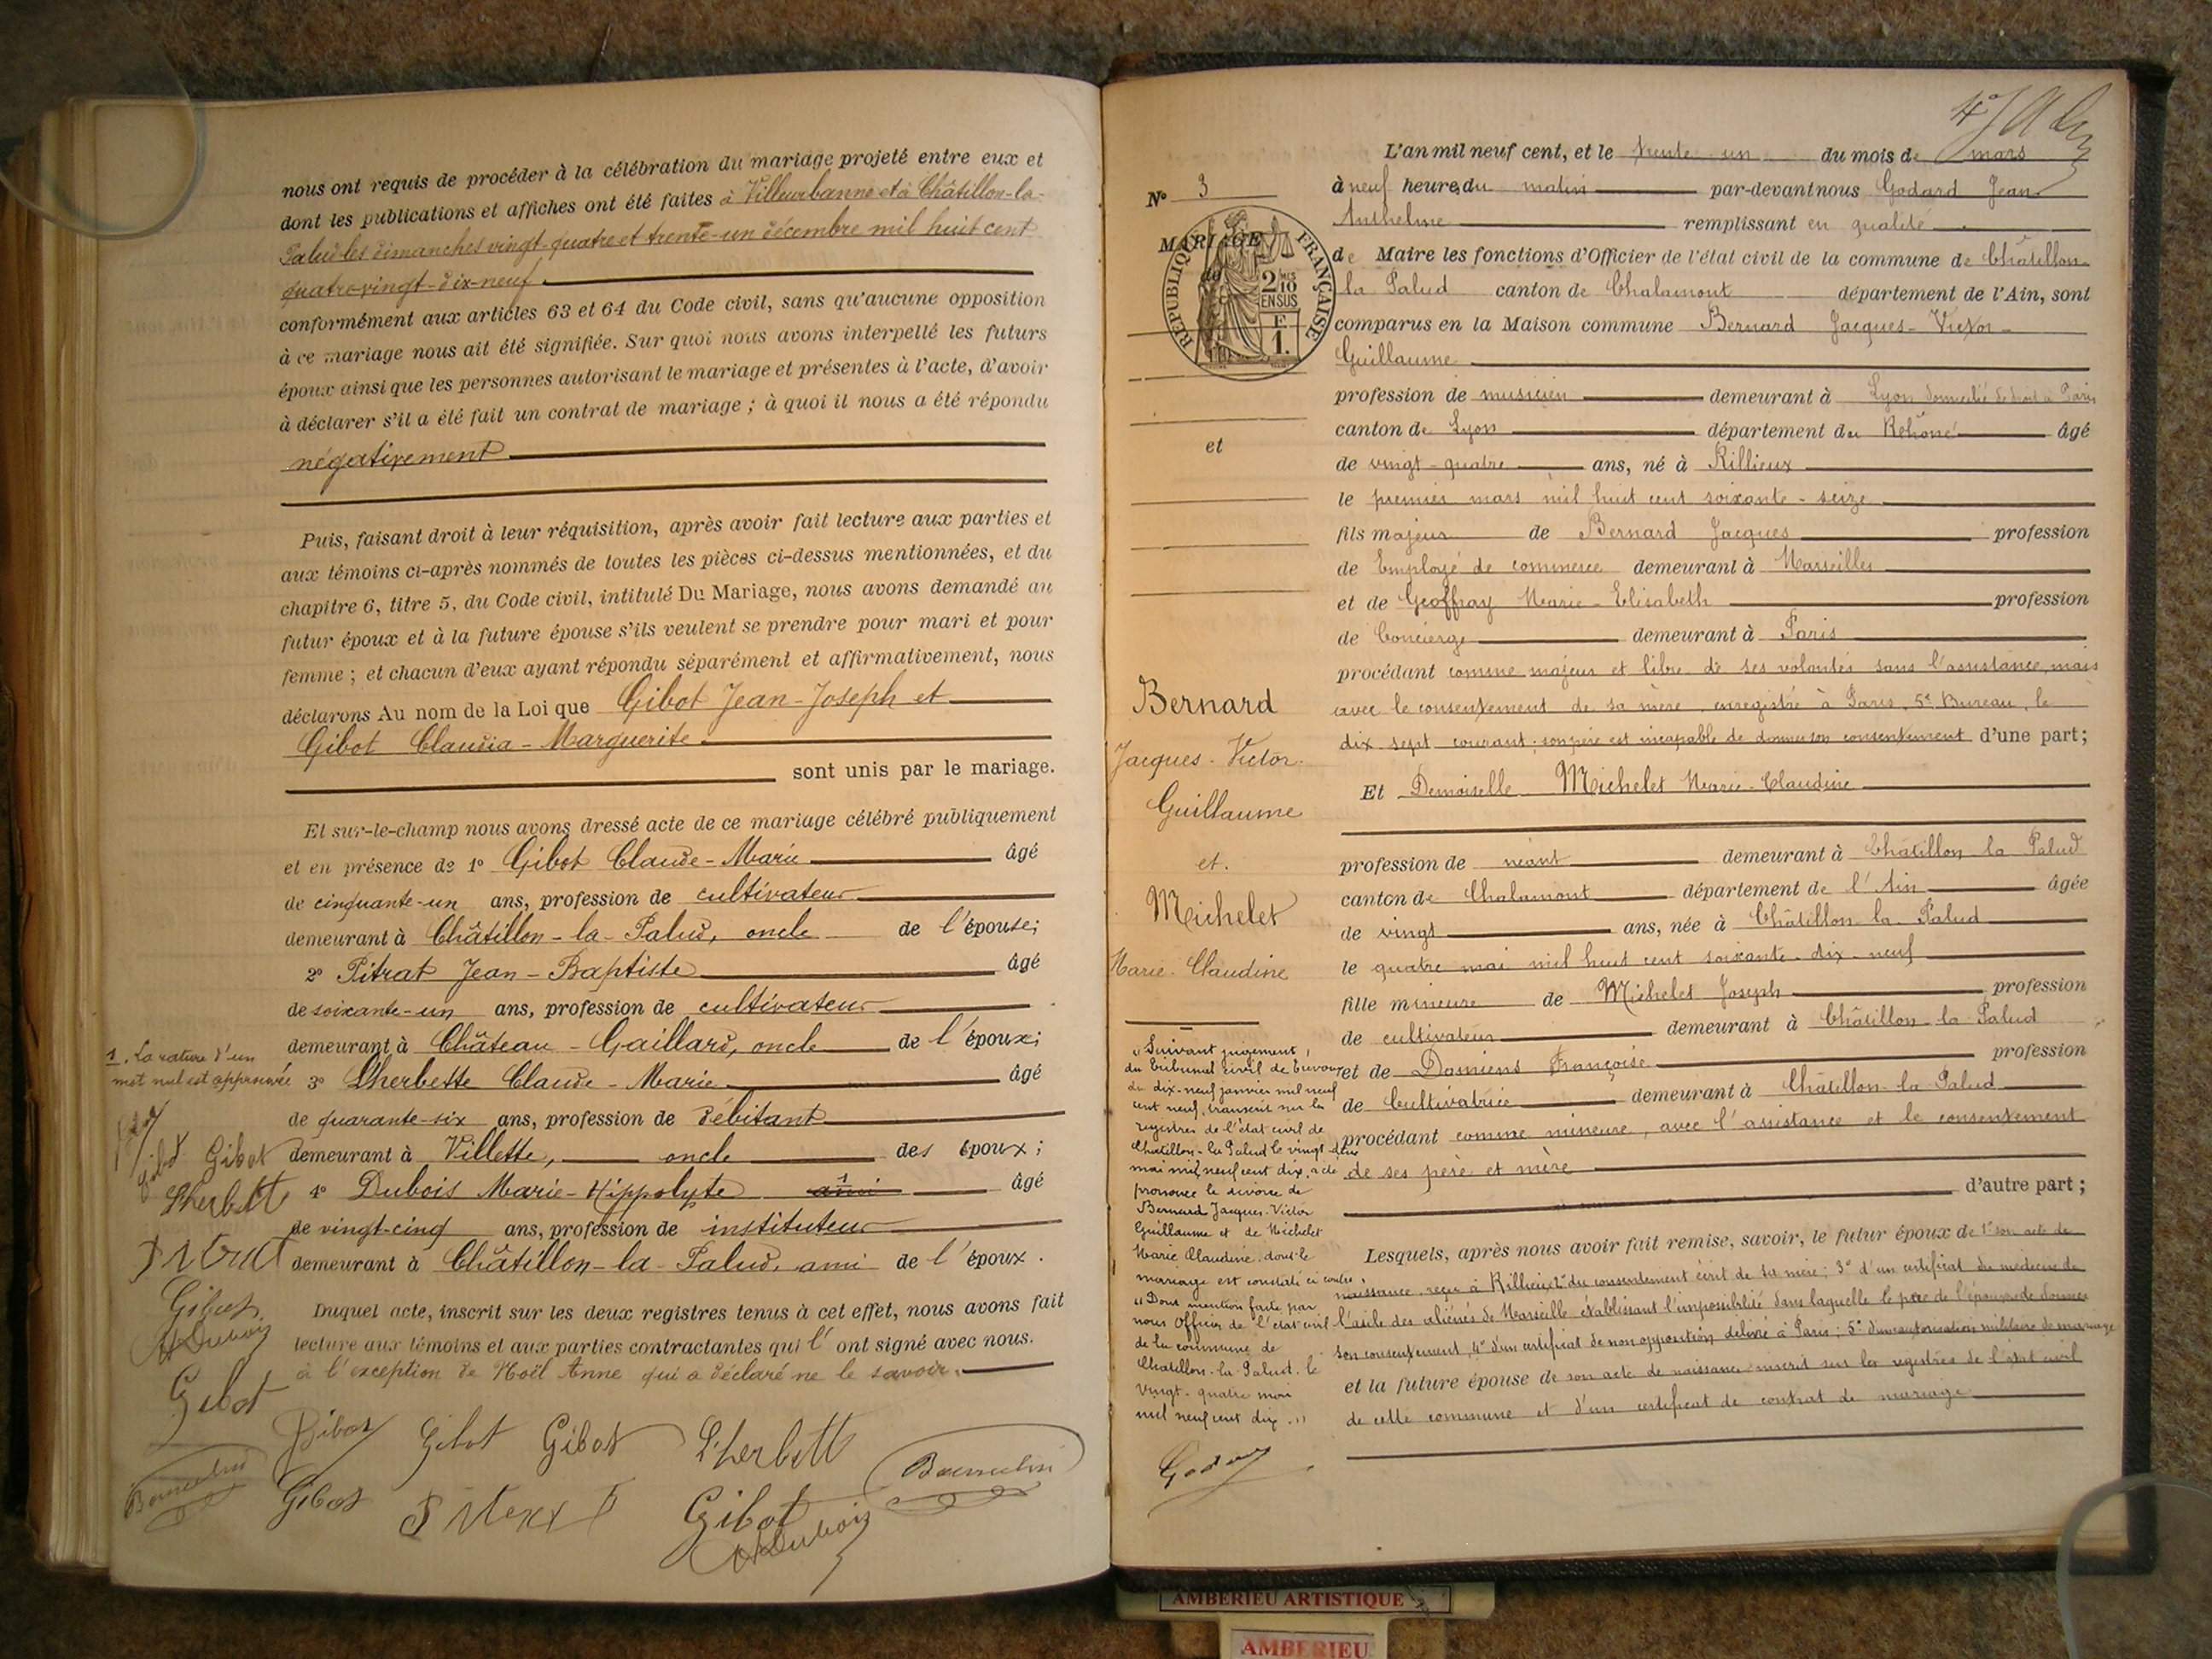 nous ont requis de procéder à la célébration du mariage projeté entre eux et
dont les publications et affiches ont été faites à Villeurbanne et à Châtillon-la-
Palud les dimanches vingt-quatre et trente-un décembre mil huit cent
quatre-vingt-dix-neuf
conformément aux articles 63 et 64 du Code civil, sans qu'aucune opposition
à ce mariage nous ait été signifiée. Sur quoi nous avons interpellé les futurs
époux ainsi que les personnes autorisant le mariage et présentes à l'acte, d'avoir
à déclarer s'il a été fait un contrat de mariage ; à quoi il nous a été répondu
négativement
Puis, faisant droit à leur réquisition, après avoir fait lecture aux parties et
aux témoins ci-après nommés de toutes les pièces ci-dessus mentionnées, et du
chapitre 6, titre 5, du Code civil, intitulé Du Mariage, nous avons demandé au
futur époux et à la future épouse s'ils veulent se prendre pour mari et pour
femme ; et chacun d'eux ayant répondu séparément et affirmativement, nous
déclarons Au nom de la Loi que Gibot Jean-Joseph et
Gibot Claudia-Marguerite
sont unis par le mariage.
Et sur-le-champ nous avons dressé acte de ce mariage célébré publiquement
et en présence de 1° Gibot Claude-Marie âgé
de cinquante-un ans, profession de cultivateur
demeurant à Châtillon-la-Palud, oncle de l'épouse;
2° Pitrat Jean-Baptiste âgé
de soixante-un ans, profession de cultivateur
demeurant à Château-Gaillard, oncle de l'époux;
1. La rature d'un
mot nul est approuvée
3° Lherbette Claude-Marie âgé
de quarante-six ans, profession de débitant
demeurant à Villette, oncle des époux ;
4° Dubois Marie-Hippolyte ami âgé
de vingt-cinq ans, profession de instituteur
demeurant à Châtillon-la-Palud, ami de l'époux.
Gibot
Lherbett
Gibot
Dubois
Gibot
Duquel acte, inscrit sur les deux registres tenus à cet effet, nous avons fait
lecture aux témoins et aux parties contractantes qui l'ont signé avec nous.
à l'exception de Noël Anne qui a déclaré ne le savoir.
Gibot Gibot Gibot Lherbett
Gibot Gibot
Dubois
L'an mil neuf cent, et le trente un du mois de mars
N° 3
à neuf heures du matin par-devant nous Godard Jean
Anthelme remplissant en qualité
MARIAGE
de
RÉPUBLIQUE FRANÇAISE
2/10 MES EN SUS
F. 1.
de Maire les fonctions d'Officier de l'état civil de la commune de Châtillon
la Palud canton de Chalamont département de l'Ain, sont
comparus en la Maison commune Bernard Jacques-Victor-
Guillaume
profession de musicien demeurant à Lyon domicilié de droit à Paris
canton de Lyon département du Rehône âgé
et
de vingt-quatre ans, né à Rillieux
le premier mars mil huit cent soixante-seize
fils majeur de Bernard Jacques profession
de Employé de commerce demeurant à Marseilles
et de Geoffray Marie-Elisabeth profession
de Concierge demeurant à Paris
procédant comme majeur et libre de ses volontés sans l'assistance, mais
avec le consentement de sa mère, enregistré à Paris, 5e Bureau, le
dix-sept courant; son père est incapable de donner son consentement d'une part;
Bernard
Jacques-Victor-
Guillaume
et.
Michelet
Marie-Claudine
Et Demoiselle Michelet Marie-Claudine
profession de néant demeurant à Châtillon la Palud
canton de Chalamont département de l'Ain âgée
de vingt ans, née à Châtillon la Palud
le quatre mai mil huit cent soixante-dix-neuf
fille mineure de Michelet Joseph profession
de cultivateur demeurant à Châtillon la Palud
et de Damiens Françoise profession
de Cultivatrice demeurant à Châtillon la Palud
procédant comme mineure, avec l'assistance et le consentement
de ses père et mère
d'autre part ;
"Suivant jugement
du Tribunal civil de Trévoux
du dix-neuf janvier mil neuf
cent neuf, transcrit sur les
registres de l'état civil de
Chatillon-la Palud le vingt-deux
mai mil neuf cent dix, a été
prononcé le divorce de
Bernard Jacques-Victor
Guillaume et de Michelet
Marie Claudine dont le
mariage est constaté ci contre,
"Dont mention faite par
nous Officier de l'état civil
de la commune de
Chatillon-la-Palud le
Vingt-quatre mai
mil neuf cent dix."
Lesquels, après nous avoir fait remise, savoir, le futur époux de 1° son acte de
naissance, reçu à Rillieux, 2° du consentement écrit de sa mère; 3° d'un certificat du médecin de
l'asile des aliénés de Marseille établissant l'impossibilité dans laquelle le père de l'époux de donner
son consentement, 4° d'un certificat de non opposition délivré à Paris; 5° d'une autorisation militaire de mariage
et la future épouse de son acte de naissance inscrit sur les registres de l'état civil
de cette commune et d'un certificat de contrat de mariage
AMBERIEU ARTISTIQUE
AMBERIEU